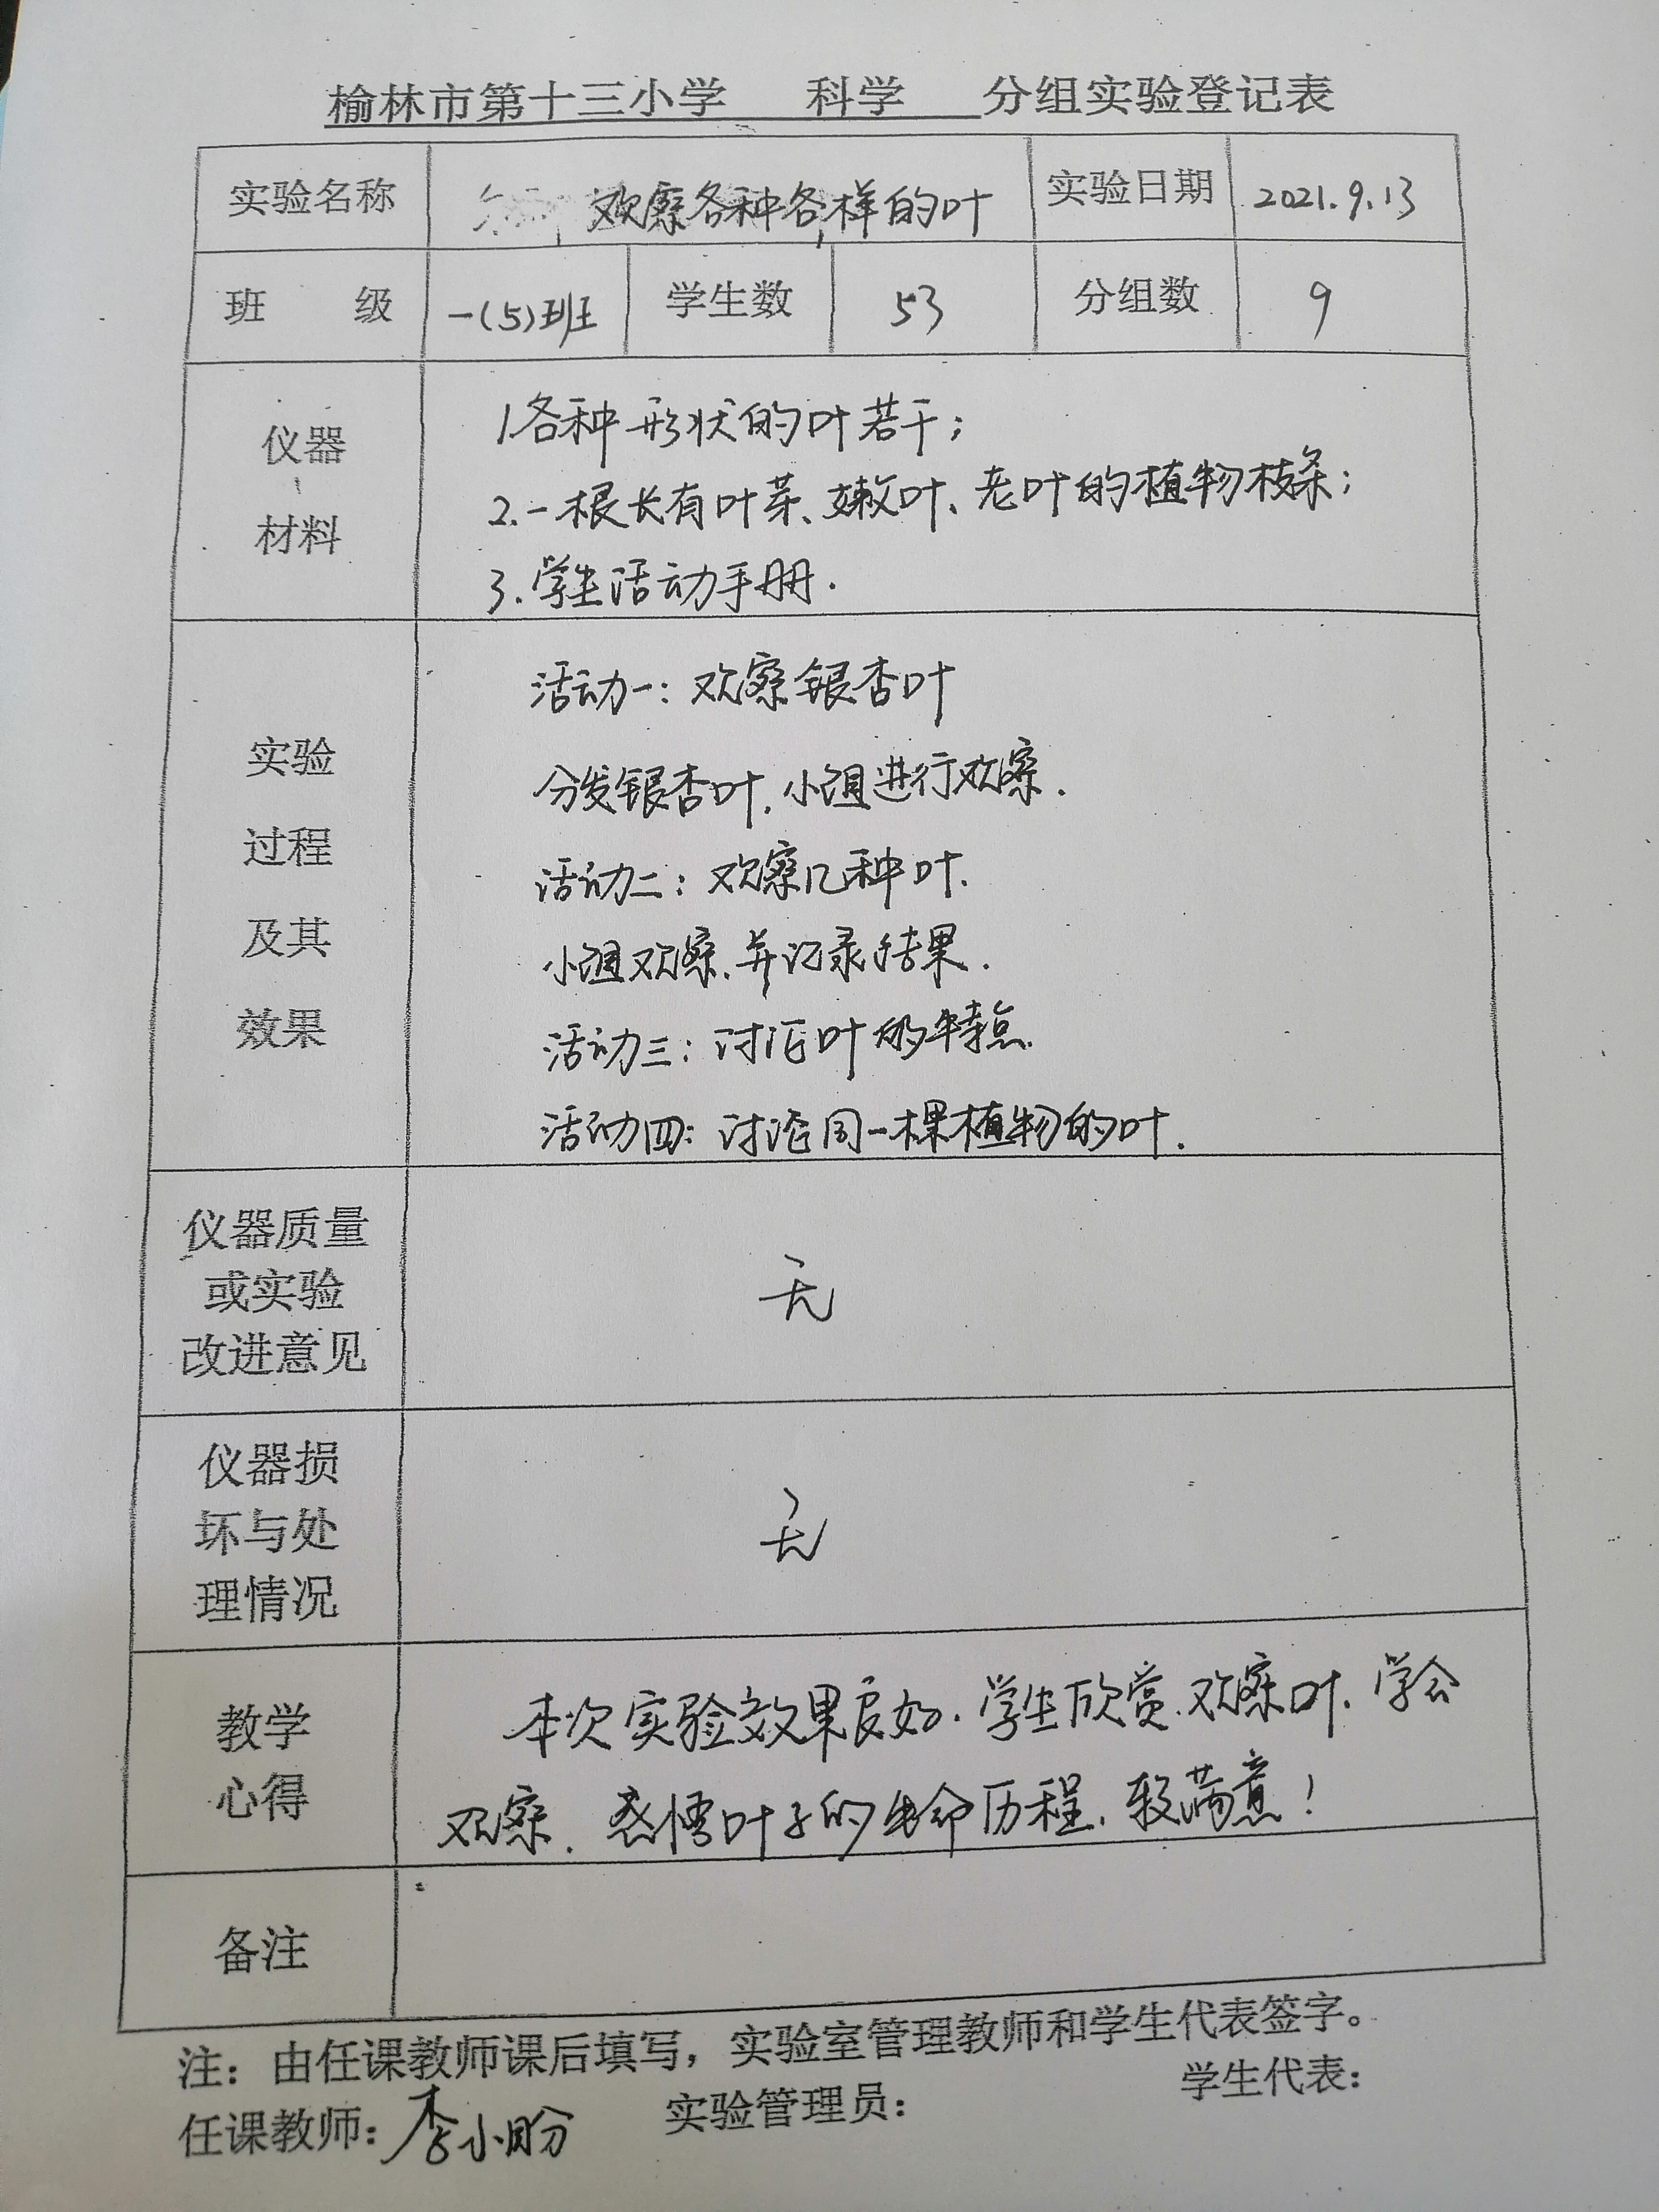 榆林市第十三小学 科学 分组实验登记表
实验名称 观察各种各样的叶 实验日期 2021.9.13
班 级 一(5)班 学生数 53 分组数 9
仪器
材料
1.各种形状的叶若干;
2.一根长有叶芽、嫩叶、老叶的植物枝条;
3.学生活动手册.
实验
过程
及其
效果
活动一:观察银杏叶
分发银杏叶,小组进行观察.
活动二:观察几种叶.
小组观察,并记录结果.
活动三:讨论叶的特点.
活动四:讨论同一棵植物的叶.
仪器质量
或实验
改进意见
无
仪器损
坏与处
理情况
无
教学
心得
本次实验效果良好.学生欣赏、观察叶、学会
观察.感悟叶子的生命历程,较满意!
备注
注:由任课教师课后填写,实验室管理教师和学生代表签字。
任课教师:李小盼 实验管理员: 学生代表: